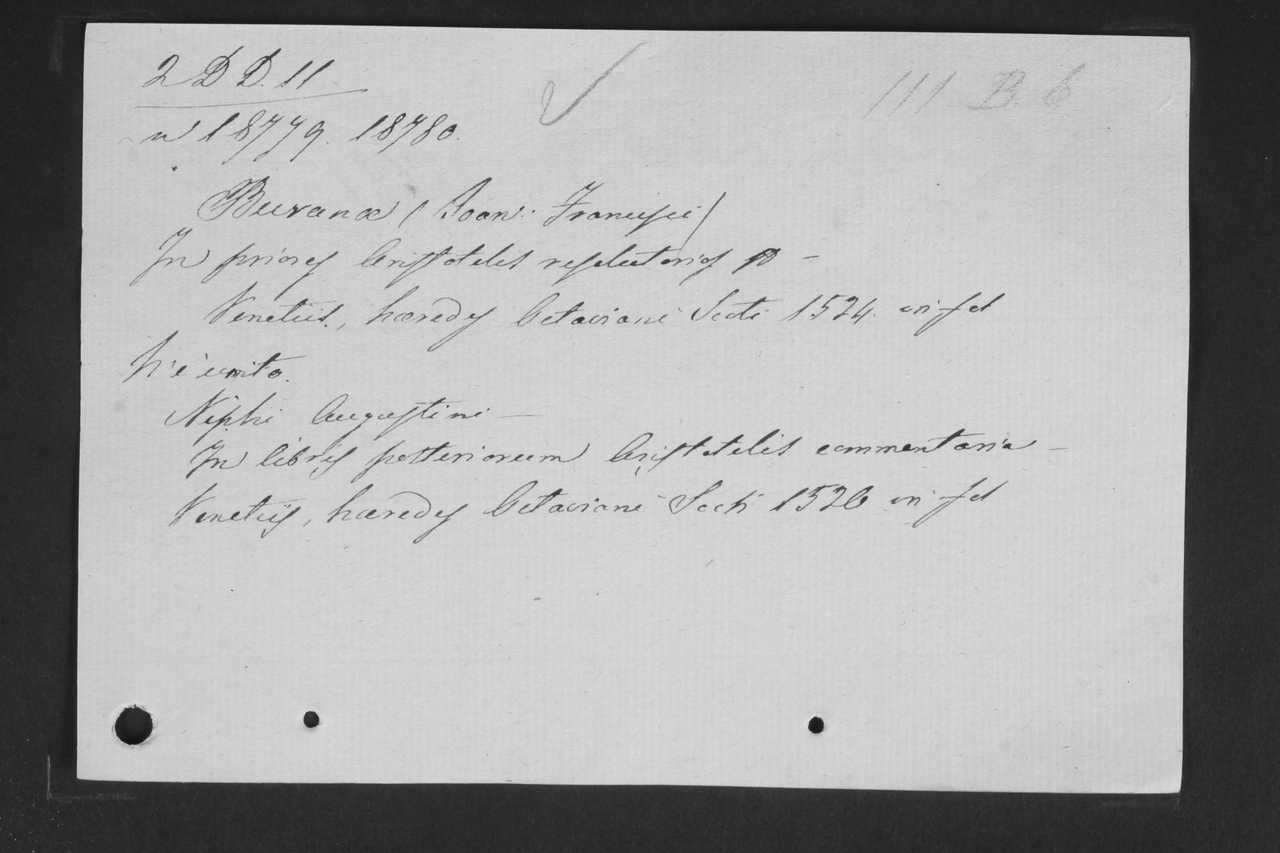 2 D D. 11
III B. 6
n 18779. 18780.
Buranæ (Joan: Francisci)
In priores Aristotelis resolutorios
Venetiis, hæredes Octaviani Scoti 1524. in fol
Niphi Augustini —
In libris posteriorum Aristotelis commentaria —
Venetiis, hæredes Octaviani Scoti 1526 in fol